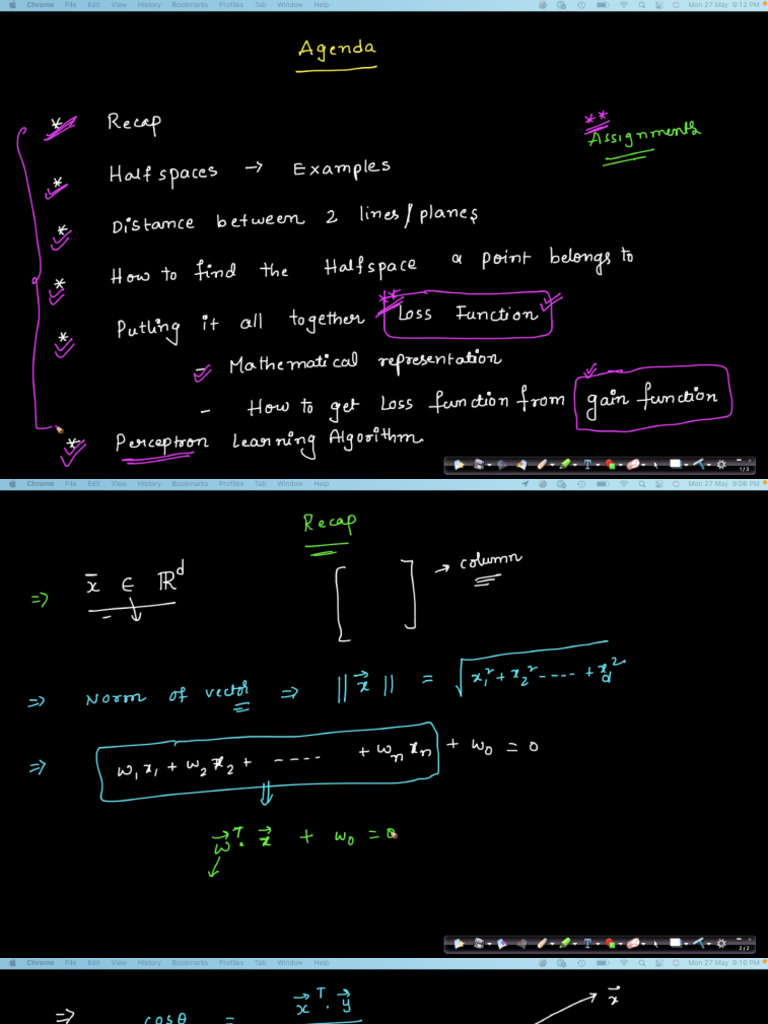 Chrome File Edit View History Bookmarks Profiles Tab Window Help Mon 27 May 9:12 PM
Agenda
* Recap
** Assignments
* Halfspaces → Examples
* Distance between 2 lines/planes
* How to find the Halfspace a point belongs to
* Putting it all together ** Loss Function
- Mathematical representation
- How to get Loss function from gain function
* Perceptron Learning Algorithm
1/3
Chrome File Edit View History Bookmarks Profiles Tab Window Help Mon 27 May 9:08 PM
Recap
⇒ x̄ ∈ ℝ^d [ ] → column
⇒ Norm of vector ⇒ ||x⃗|| = √(x₁² + x₂² ---- + x_d²)
⇒ w₁x₁ + w₂x₂ + ---- + wₙxₙ + w₀ = 0
w⃗ᵀ. x⃗ + w₀ = 0
2/2
Chrome File Edit View History Bookmarks Profiles Tab Window Help Mon 27 May 9:10 PM
x⃗
x⃗ᵀ. y⃗
⇒ cosθ =